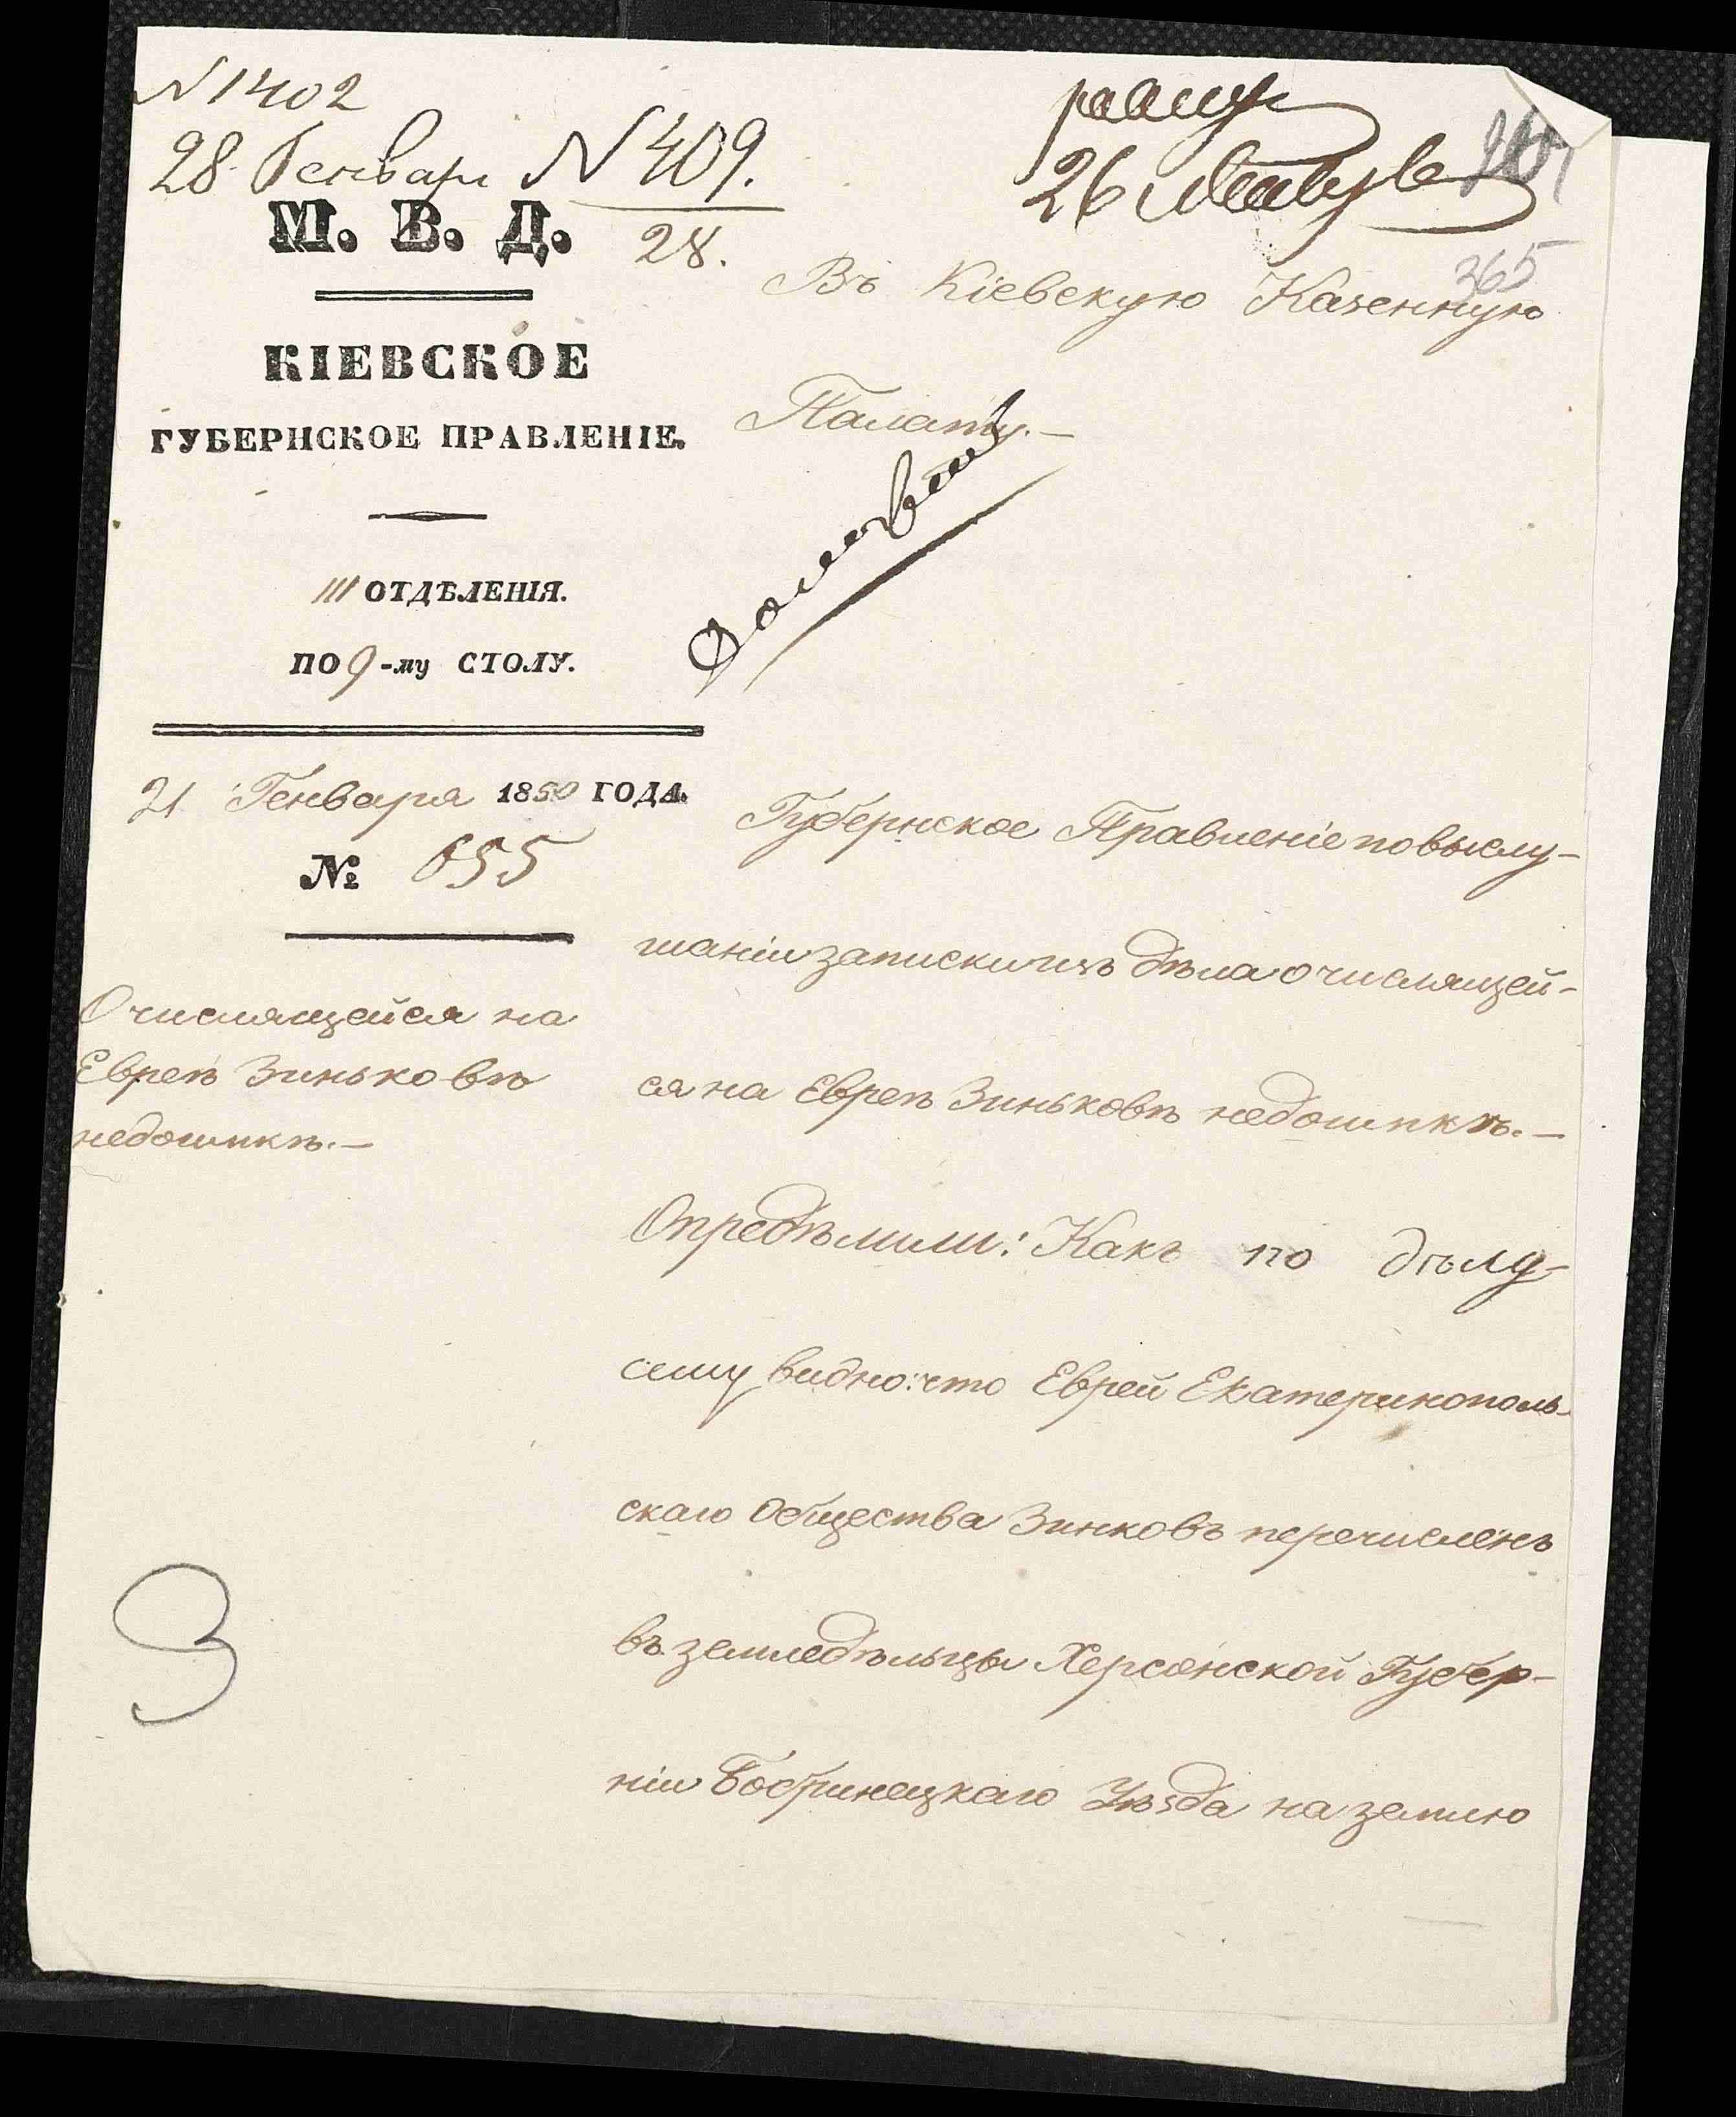 N 1402
28 Генваря N 409.
28.
26 Генваря
365
М. В. Д.
КІЕВСКОЕ
ГУБЕРНСКОЕ ПРАВЛЕНІЕ.
III ОТДѢЛЕНІЯ.
ПО 9-му СТОЛУ.
21 Генваря 1850 ГОДА.
№ 655
О числящейся на
Евреѣ Зиньковѣ
недоимкѣ.—
Въ Кіевскую Казенную
Палату.—
Губернское Правленіе по выслу-
шаніи записки изъ дѣла о числящей-
ся на Евреѣ Зиньковѣ недоимкѣ.—
Опредѣлили: Какъ по дѣлу
сему видно: что Еврей Екатеринополь-
скаго Общества Зинковъ перечисленъ
въ земледѣльцы Херсонской Губер-
ніи Бобринецкаго Уѣзда на землю
3